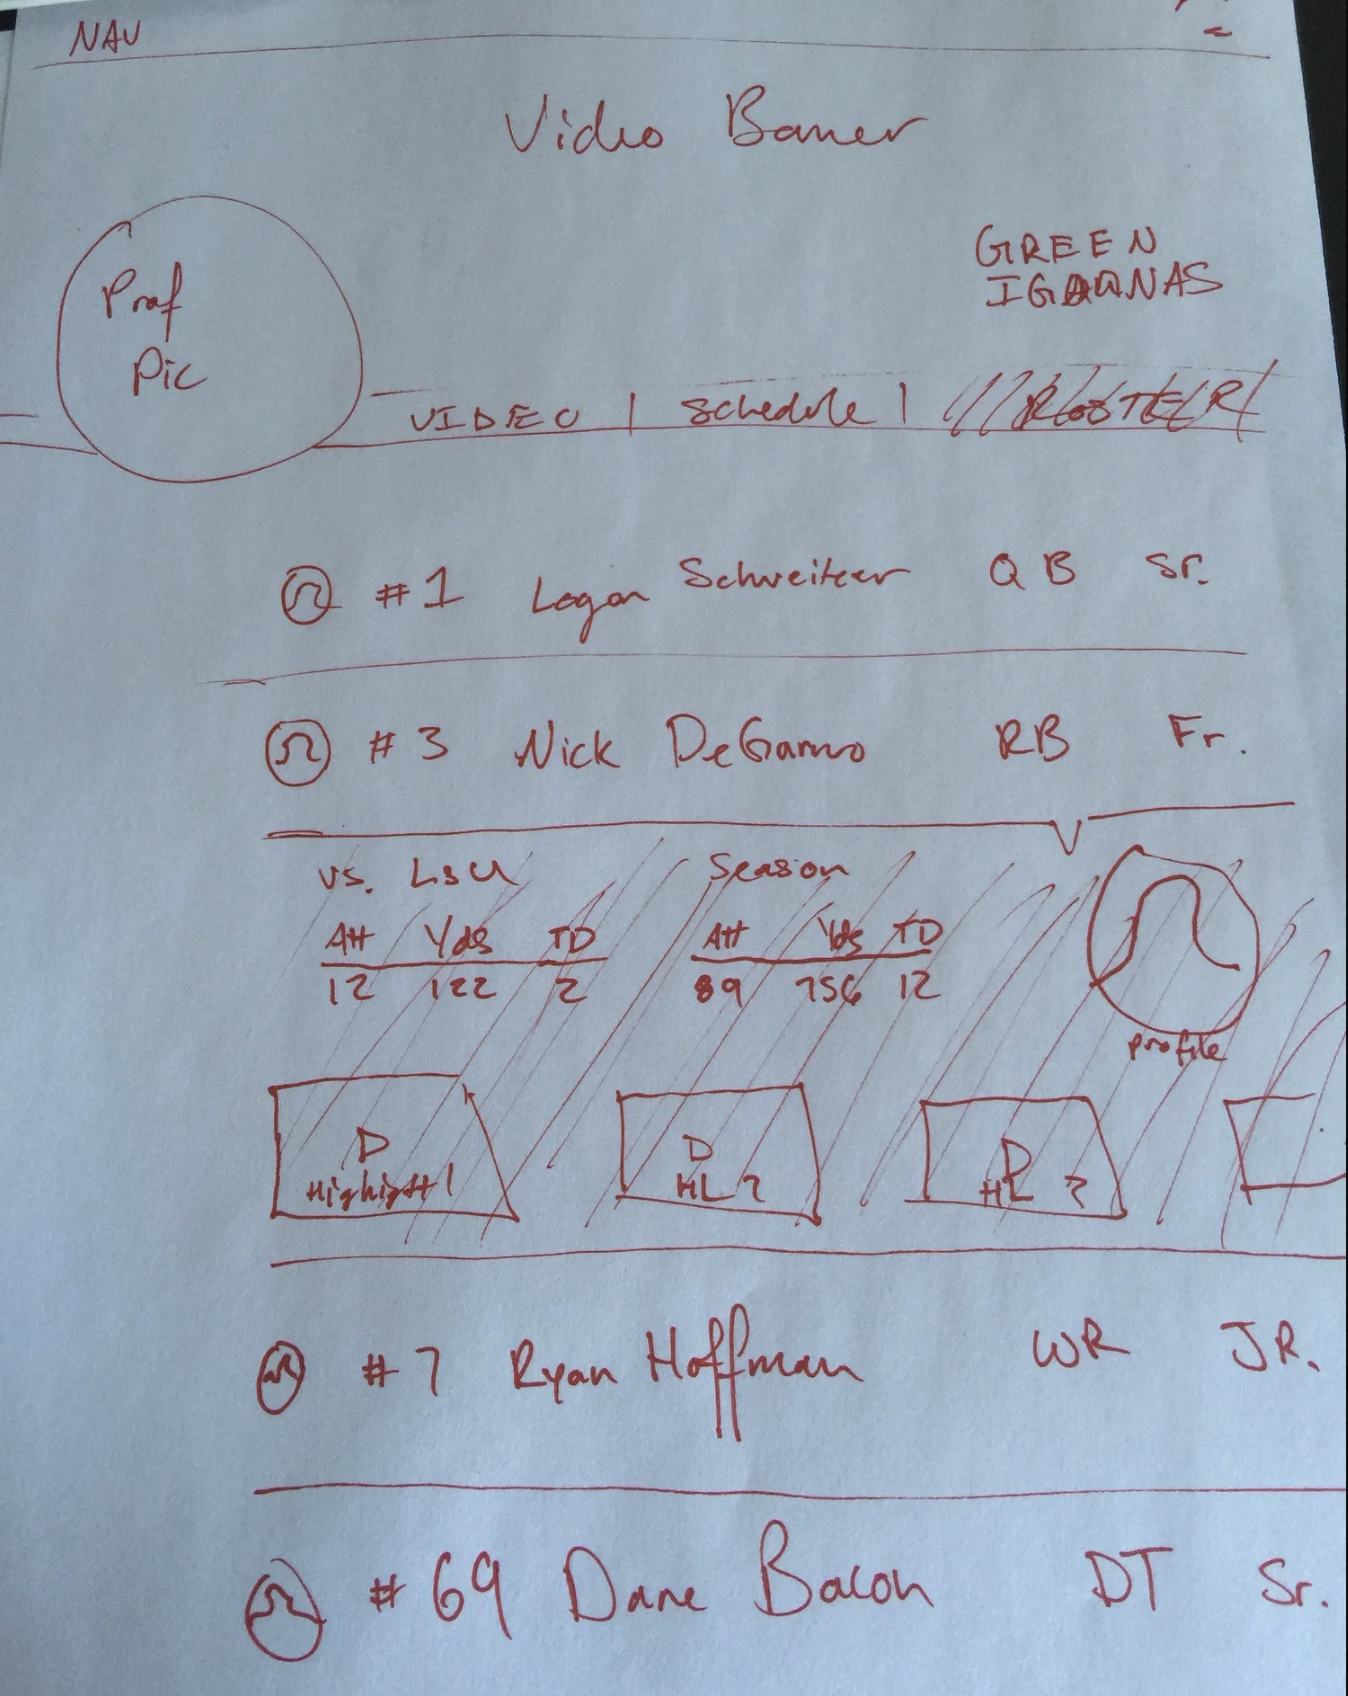 NAV
Video Banner
GREEN
IGAUNAS
Prof
Pic
VIDEO | Schedule | ROSTER
#1 Logan Schweitzer QB Sr.
#3 Nick DeGarmo RB Fr.
vs. LSU Season
Att Yds TD Att Yds TD
12 122 2 89 756 12
profile
Highlight 1 HL 2 HL ?
#7 Ryan Hoffman WR JR.
#69 Dane Bacon DT Sr.